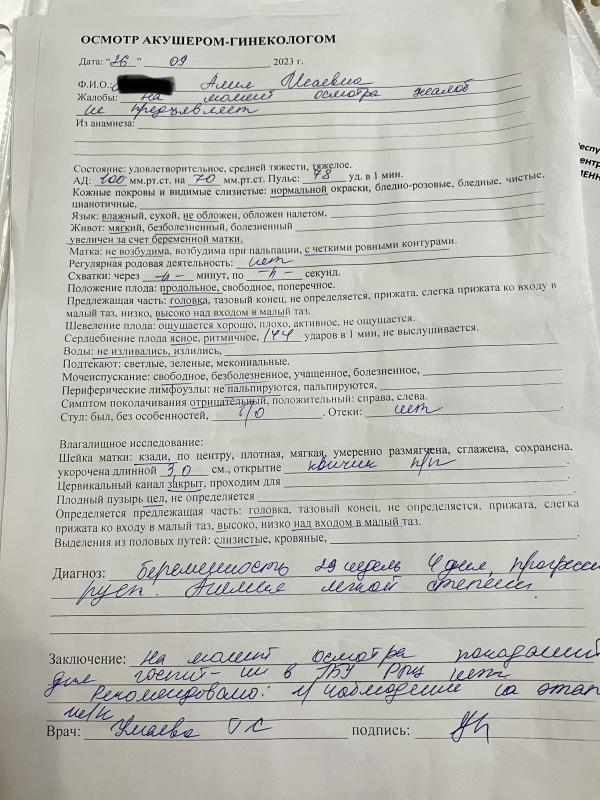 ОСМОТР АКУШЕРОМ-ГИНЕКОЛОГОМ
Дата: "26" 09 2023 г.
Ф.И.О.: Исаевна
Жалобы: на момент осмотра жалоб
не предъявляет
Из анамнеза:
Респу
ентр
МЕНН
Состояние: удовлетворительное, средней тяжести, тяжелое.
АД: 100 мм.рт.ст. на 70 мм.рт.ст. Пульс: 78 уд. в 1 мин.
Кожные покровы и видимые слизистые: нормальной окраски, бледно-розовые, бледные, чистые,
цианотичные,
Язык: влажный, сухой, не обложен, обложен налетом,
Живот: мягкий, безболезненный, болезненный
увеличен за счет беременной матки.
Матка: не возбудима, возбудима при пальпации, с четкими ровными контурами.
Регулярная родовая деятельность: нет
Схватки: через -//- минут, по -//- секунд.
Положение плода: продольное, свободное, поперечное.
Предлежащая часть: головка, тазовый конец, не определяется, прижата, слегка прижата ко входу в
малый таз, низко, высоко над входом в малый таз.
Шевеление плода: ощущается хорошо, плохо, активное, не ощущается.
Сердцебиение плода ясное, ритмичное, 144 ударов в 1 мин, не выслушивается.
Воды: не изливались, излились,
Подтекают: светлые, зеленые, мекониальные.
Мочеиспускание: свободное, безболезненное, учащенное, болезненное,
Периферические лимфоузлы: не пальпируются, пальпируются,
Симптом поколачивания отрицательный, положительный: справа, слева.
Стул: был, без особенностей, б/о. Отеки: нет.
Влагалищное исследование:
Шейка матки: кзади, по центру, плотная, мягкая, умеренно размягчена, сглажена, сохранена,
укорочена длинной 3,0 см., открытие
Цервикальный канал закрыт, проходим для
Плодный пузырь цел, не определяется
Определяется предлежащая часть: головка, тазовый конец, не определяется, прижата, слегка
прижата ко входу в малый таз, высоко, низко над входом в малый таз.
Выделения из половых путей: слизистые, кровяные,
Диагноз: беременность 29 недель 4 дня, прогресси
рует. Анемия легкой степени.
Заключение: На момент осмотра показаний
для госпит-ии в ГБУ РПЦ нет
Рекомендовано: наблюдение на этап
ж/к
Врач: Умаева подпись: